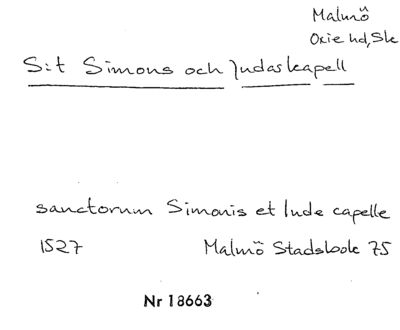 Malmö
Oxie hd, Sk
S:t Simons och Judas kapell
sanctorum Simonis et Iude capelle
1527 Malmö Stadsbok 75
Nr 18663